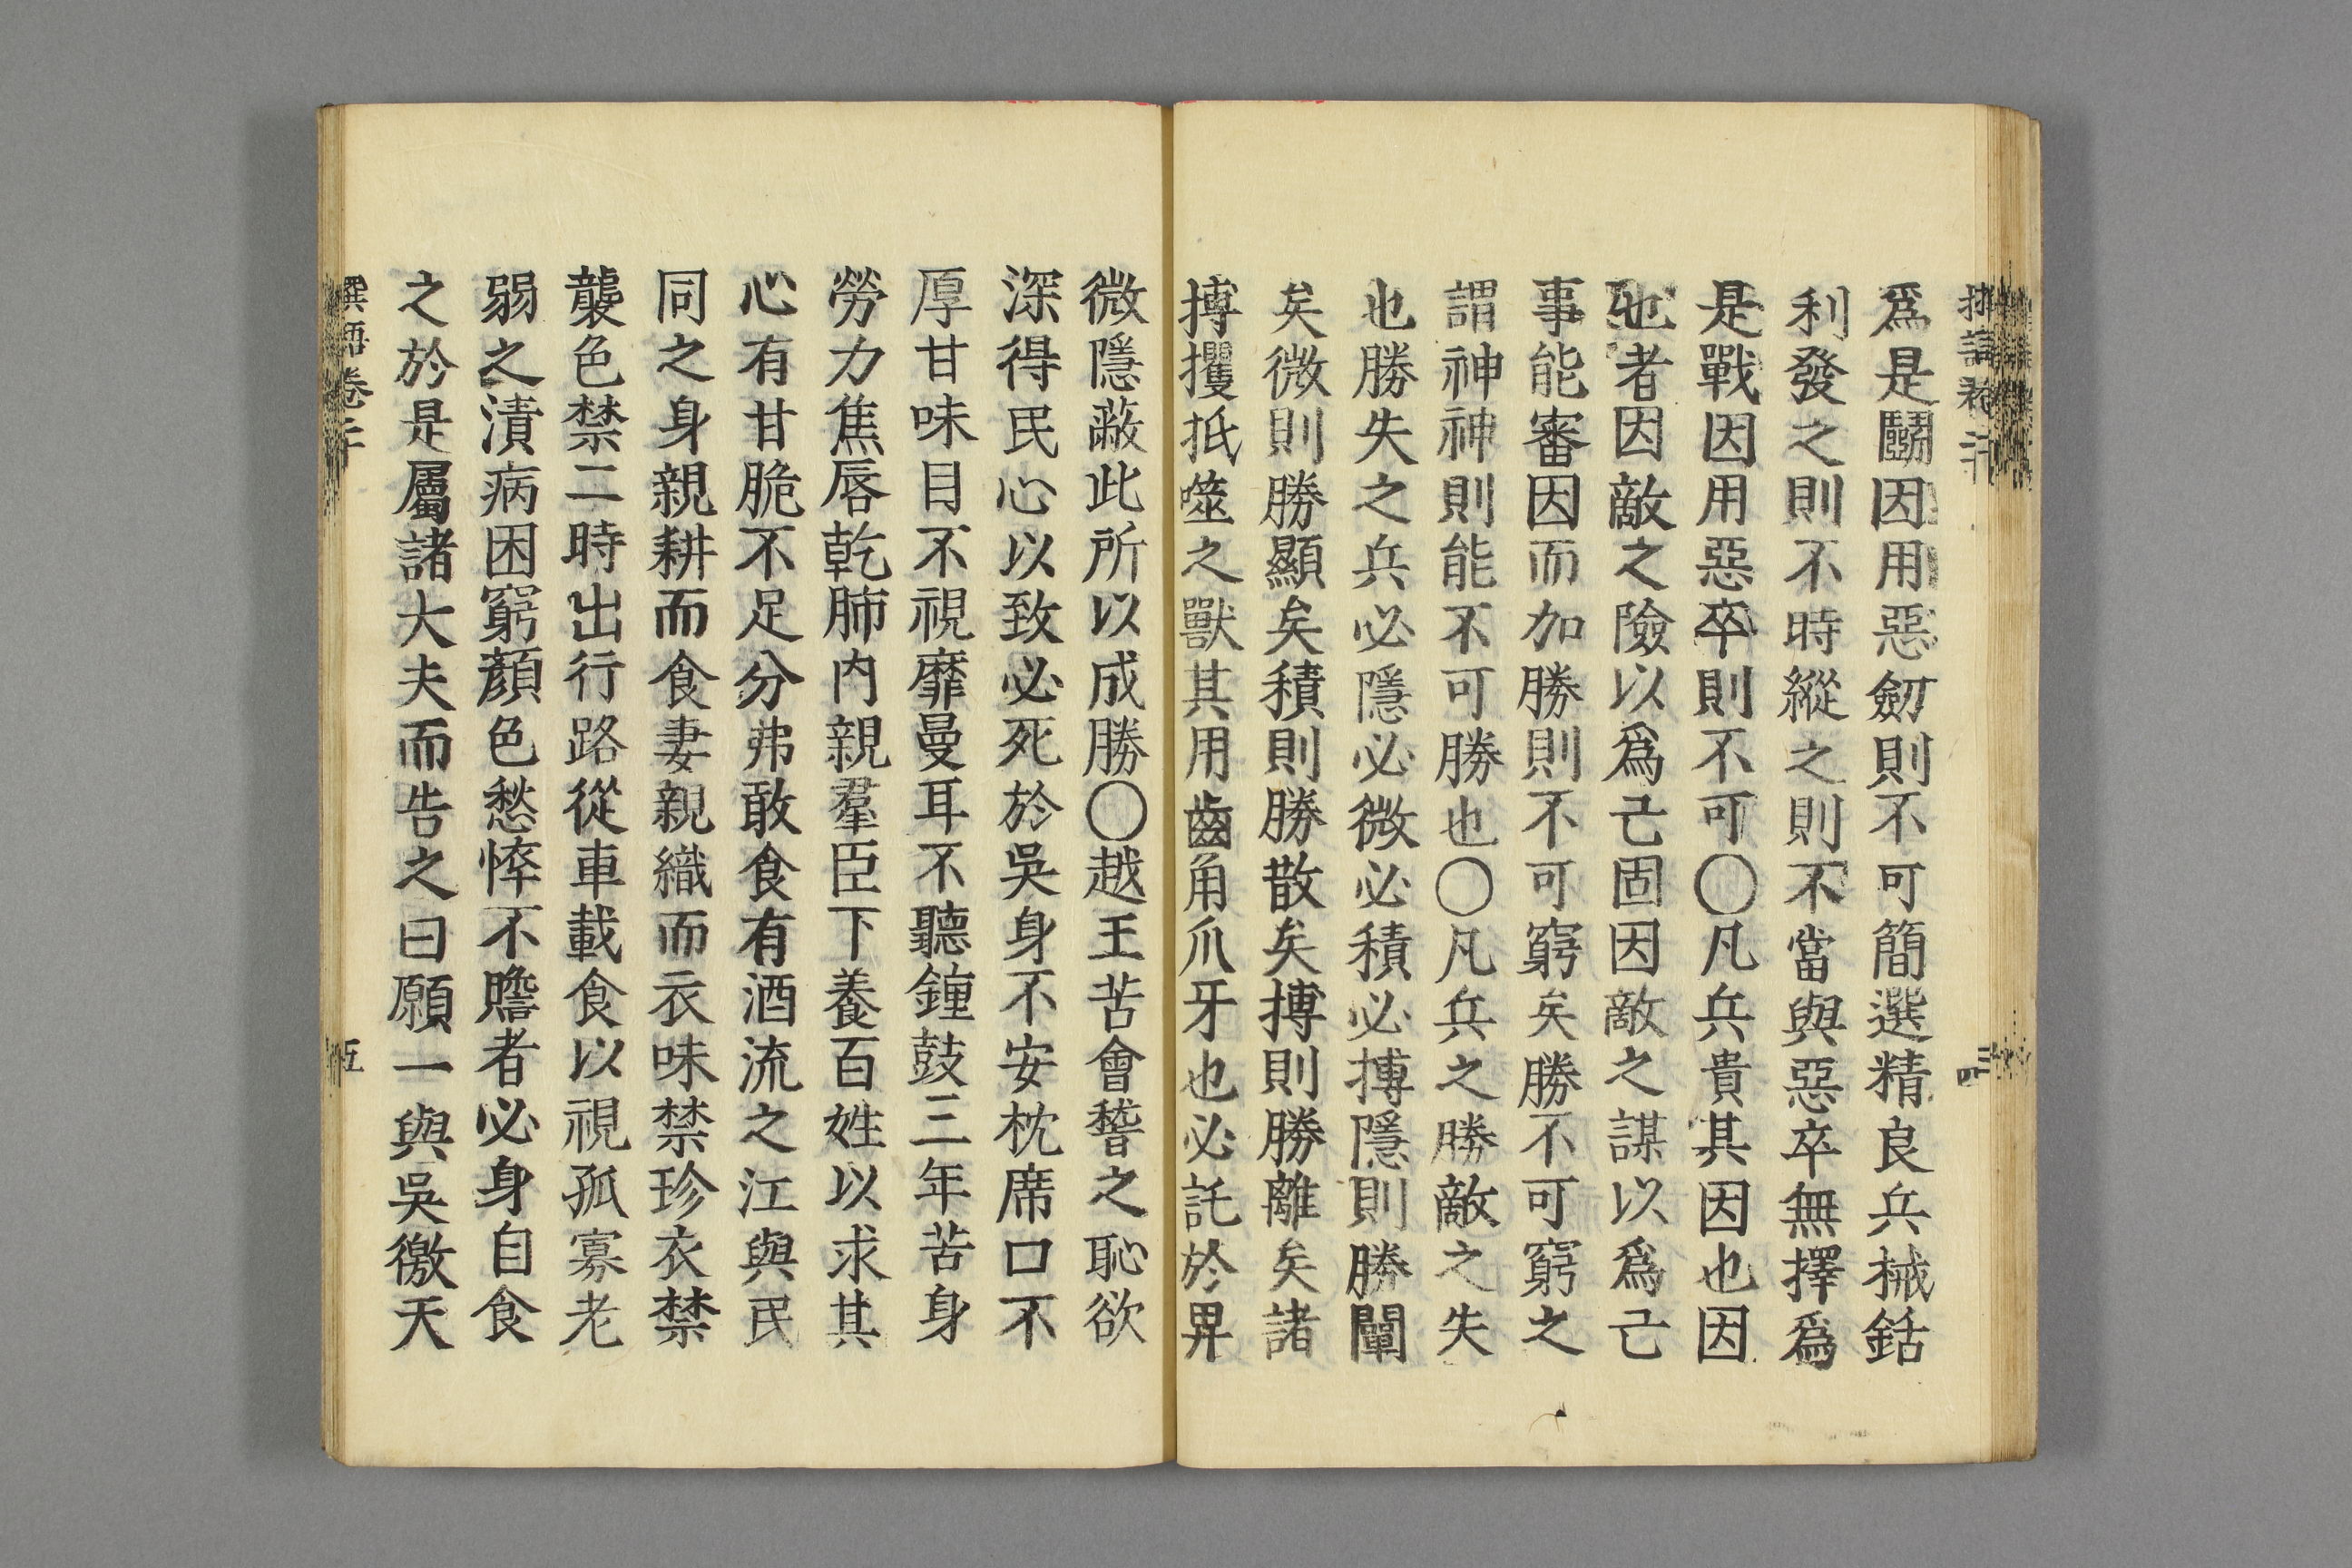 爲是鬭因用惡劒則不可簡選精良兵械銛
利發之則不時縱之則不當與惡卒無擇爲
是戰因用惡卒則不可○凡兵貴其因也因
也者因敵之險以爲己固因敵之謀以爲己
事能審因而加勝則不可窮矣勝不可窮之
謂神神則能不可勝也○凡兵之勝敵之失
也勝失之兵必隱必微必積必摶隱則勝闡
矣微則勝顯矣積則勝散矣摶則勝離矣諸
搏攫抵噬之獸其用齒角爪牙也必託於畀
微隱蔽此所以成勝○越王苦會稽之恥欲
深得民心以致必死於吳身不安枕席口不
厚甘味目不視靡曼耳不聽鐘鼓三年苦身
勞力焦唇乾肺內親羣臣下養百姓以求其
心有甘脆不足分弗敢食有酒流之江與民
同之身親耕而食妻親織而衣味禁珍衣禁
襲色禁二時出行路從車載食以視孤寡老
弱之漬病困窮顏色愁悴不贍者必身自食
之於是屬諸大夫而告之曰願一與吳徼天
卷二十
五